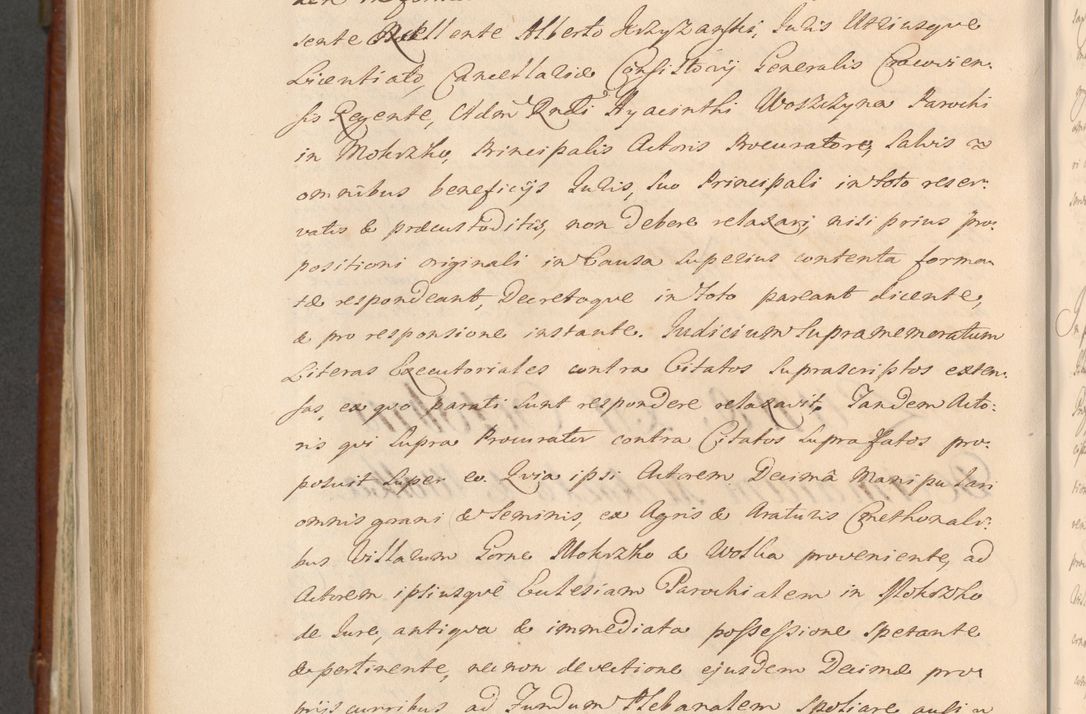 sente Excellente Alberto Jrzyzański, Juris Utriusque
Licentiato, Cancellariæ Consistorij Generalis Cracovien-
sis Regente, Adm Rndi Hyacinthi Woszczyna Parochi
in Mokrzko, Principalis Actoris Procuratore, salvis
omnibus beneficijs Juris, suo Principali in toto reser-
vatis & præcustoditis, non debere relaxari, nisi prius pro-
positioni originali in Causa superius contenta forma-
tæ respondeant, Decretoque in toto pareant dicente,
& pro responsione instante. Judicium supramemoratum
Literas Executoriales contra Citatos suprascriptos exten-
sas, ex quo parati sunt respondere relaxavit. Tandem Acto-
ris qui supra Procurator contra Citatos suprafatos pro-
posuit super eo. Quia ipsi Actorem Decimâ Manipulari
omnis grani & seminis, ex Agris & Araturis Cmethonali-
bus Villarum Gorne Mokrzko & Wolka proveniente, ad
Actorem ipsiusque Ecclesiam Parochialem in Mokrzko
de Jure antiqua & immediata possessione spectante
& pertinente, nec non devectione ejusdem Decimæ pro-
prijs curribus ad Fundum Plebanalem spoliare ausi